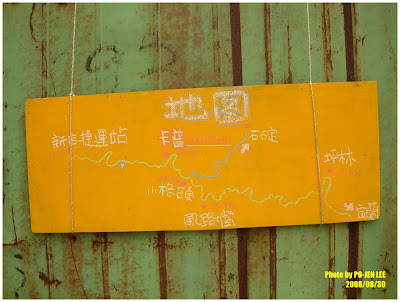 地图
新店捷運站
卡普
石碇
坪林
小格頭
風路嘴
宜蘭
Photo by PO-JEN LEE
2008/08/30